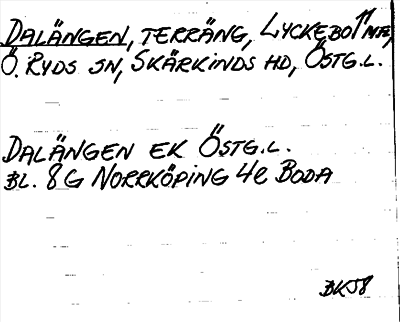 DALÄNGEN, TERRÄNG, LYCKEBO 1¹¹ MTL,
Ö. RYDS SN, SKÄRKINDS HD, ÖSTG.L.
DALÄNGEN EK ÖSTG.L.
BL. 8G NORRKÖPING 4e BODA
BK58